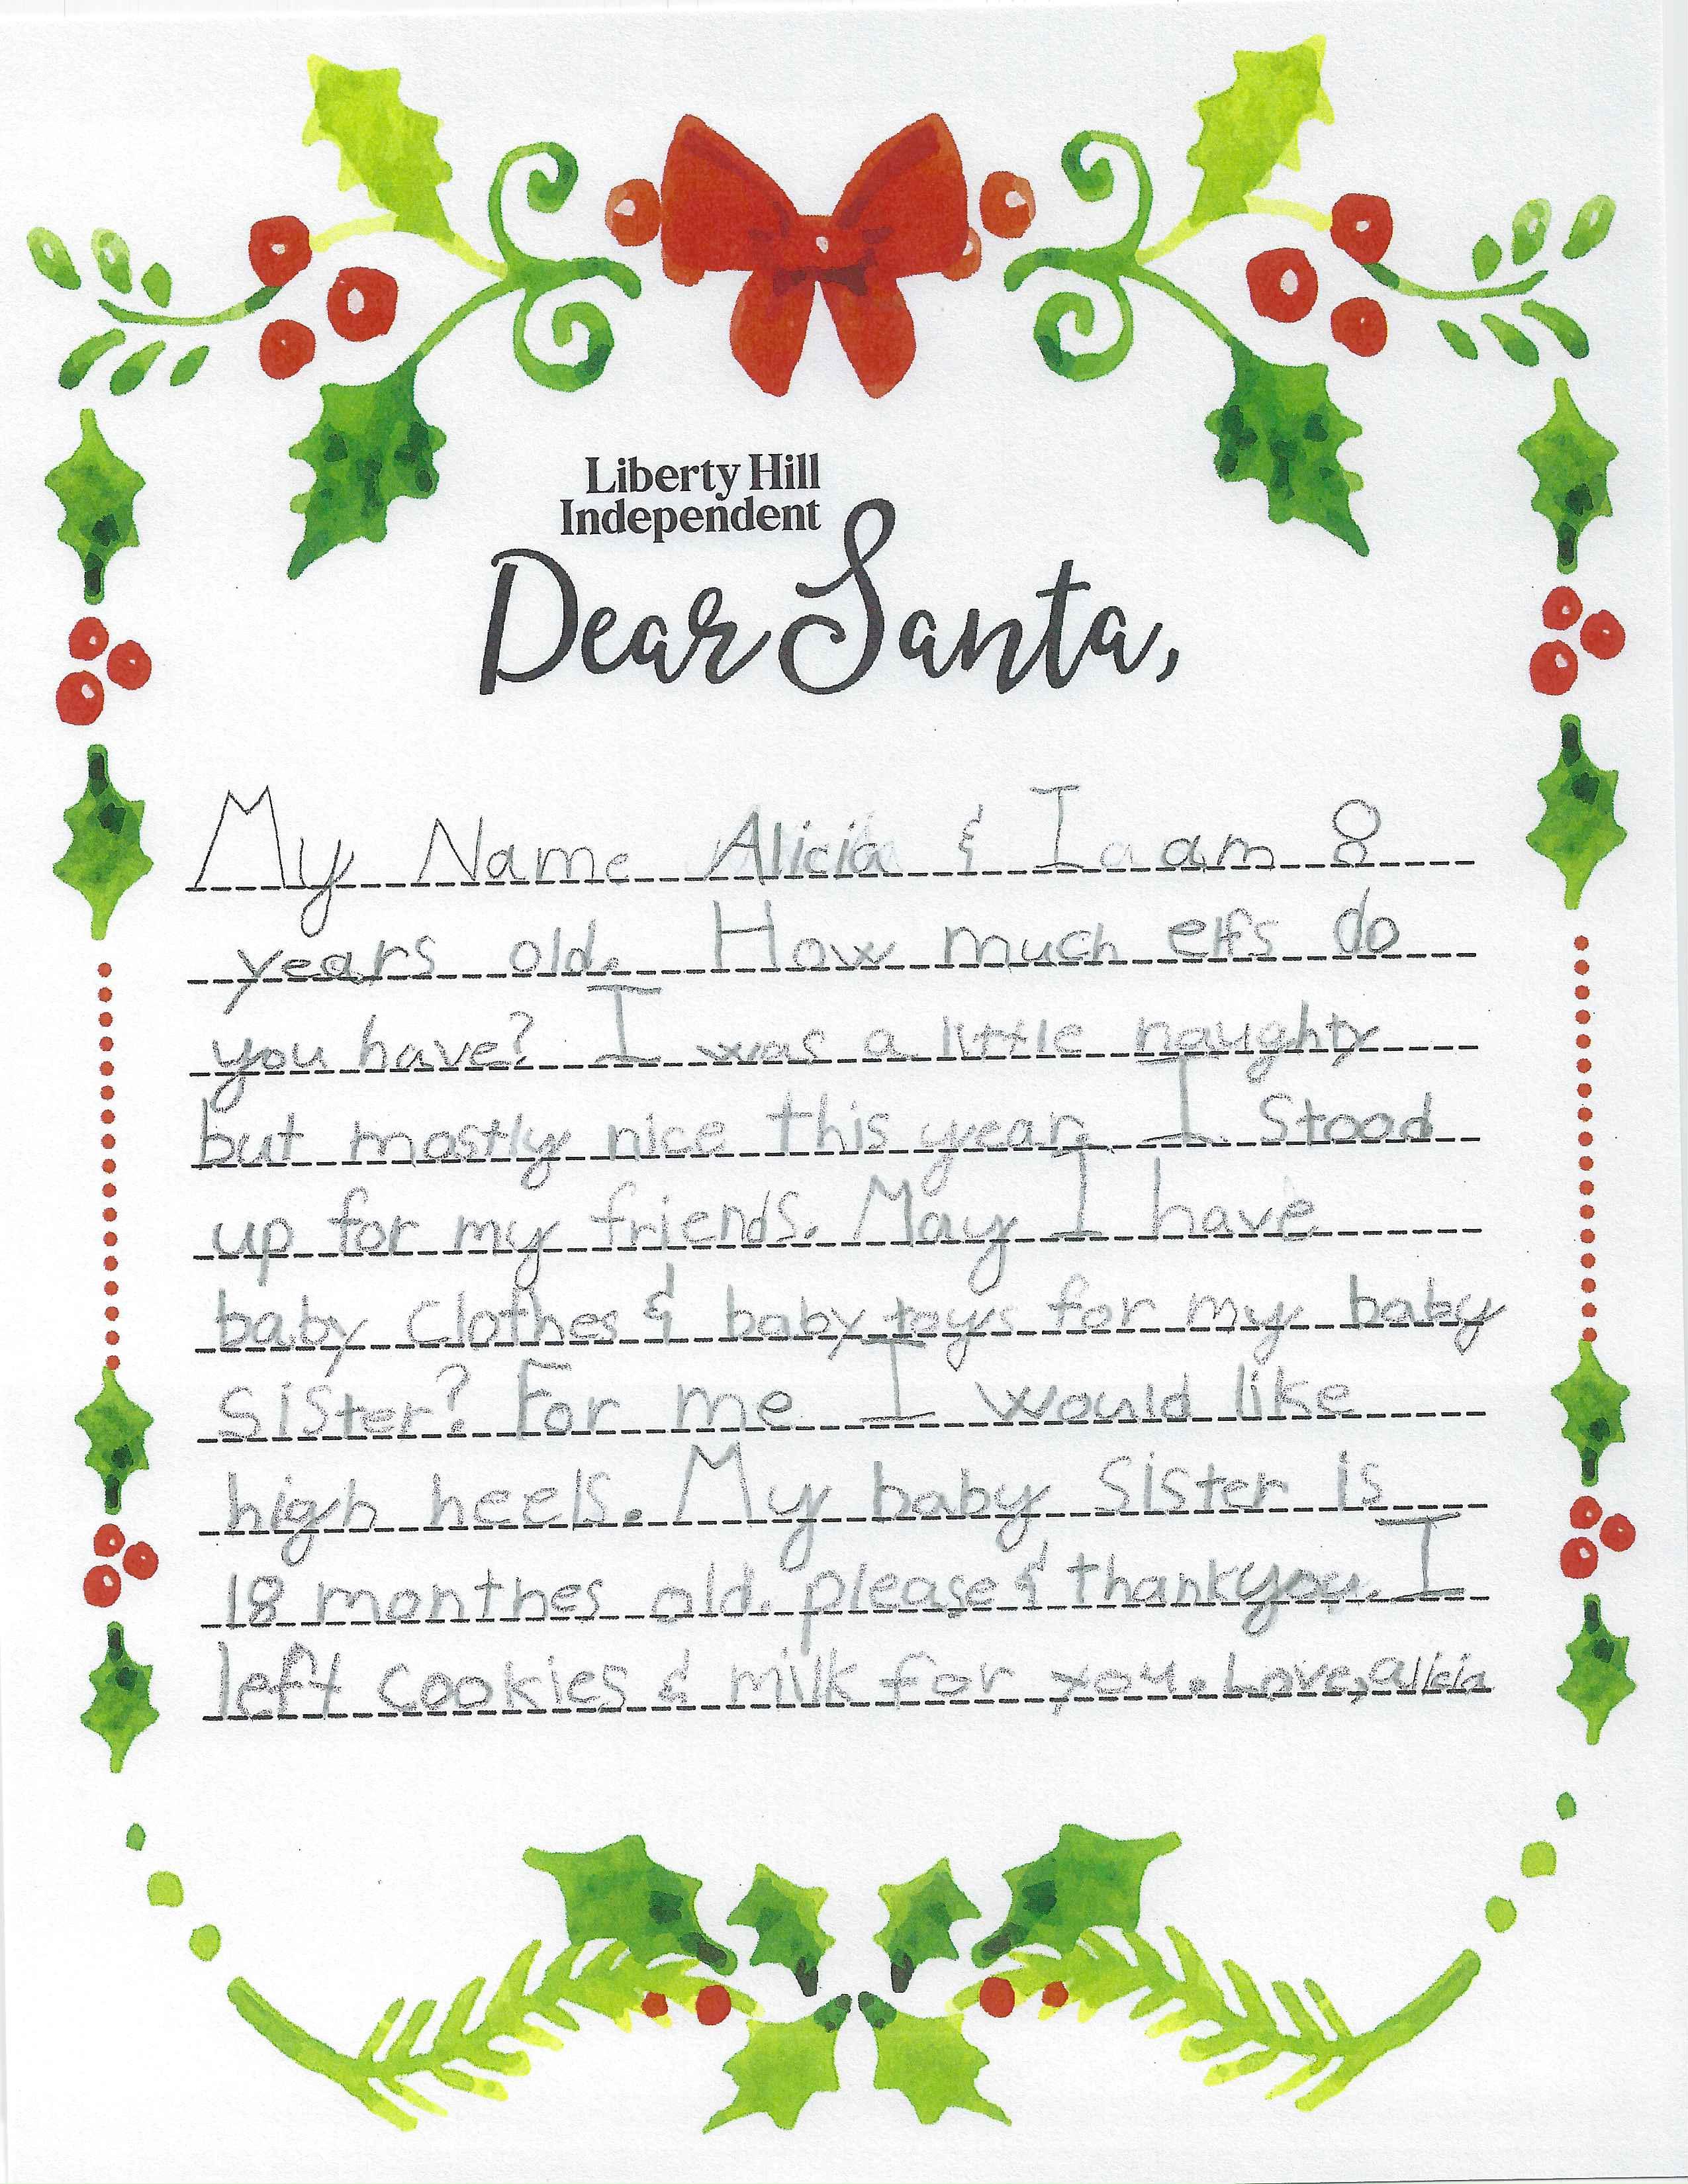 Liberty Hill
Independent
Dear Santa,
My Name Alicia & I am 8
years old. How much elfs do
you have? I was a little naughty
but mostly nice this year. I stood
up for my friends. May I have
baby clothes & baby toys for my baby
sister? For me I would like
high heels. My baby sister is
18 monthes old. please & thankyou. I
left cookies & milk for you. Love, alicia